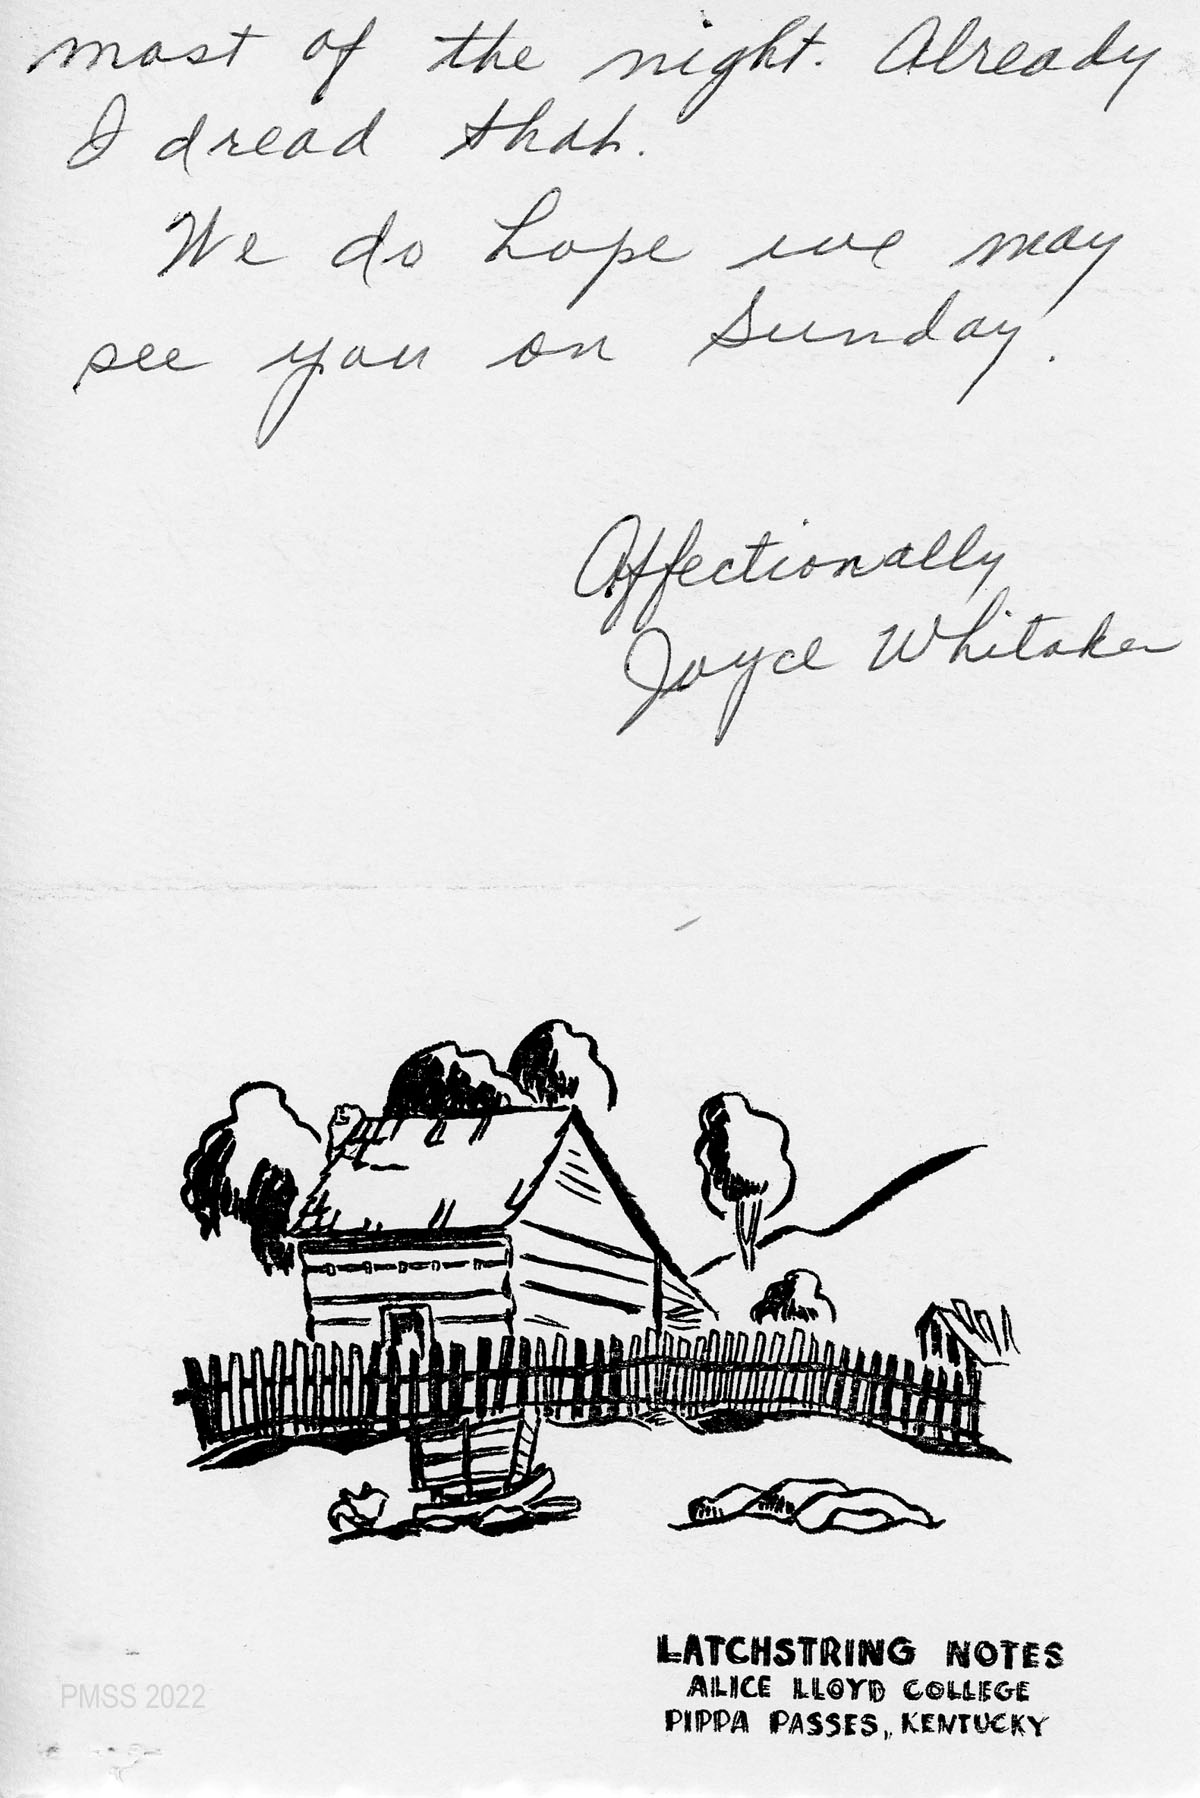 most of the night. Already
I dread that.
We do hope we may
see you on Sunday.
Affectionally
Joyce Whitaker
LATCHSTRING NOTES
ALICE LLOYD COLLEGE
PIPPA PASSES, KENTUCKY
PMSS 2022